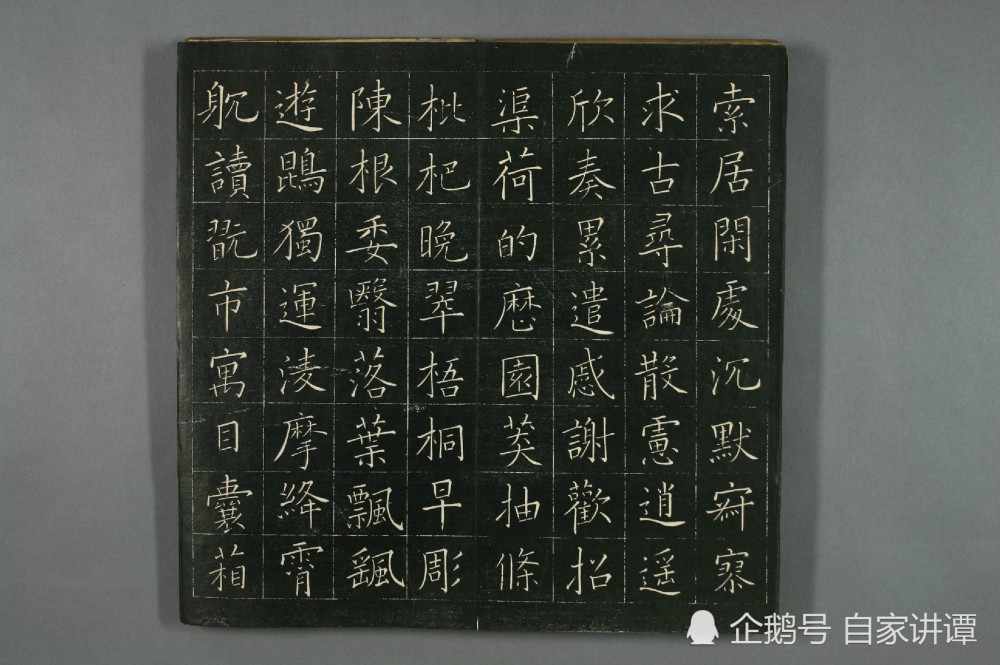 索居閑處沉默寂寥
求古尋論散慮逍遥
欣奏累遣慼謝歡招
渠荷的歷園莽抽條
枇杷晚翠梧桐早彫
陳根委翳落葉飄颻
遊鵾獨運淩摩絳霄
躭讀翫市寓目囊葙
企鹅号 自家讲谭